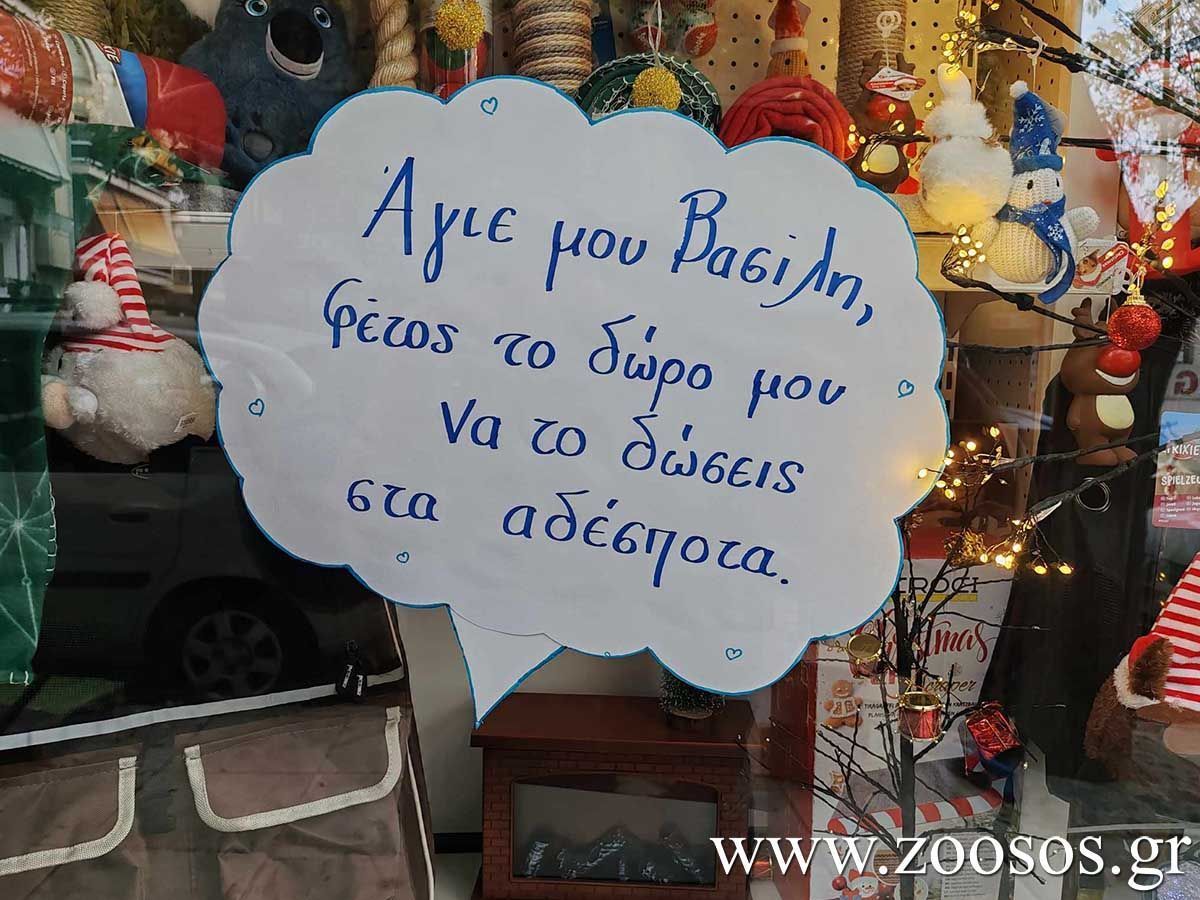 Άγιε μου Βασίλη,
φέτος το δώρο μου
να το δώσεις
στα αδέσποτα.
TRIXIE
www.zoosos.gr